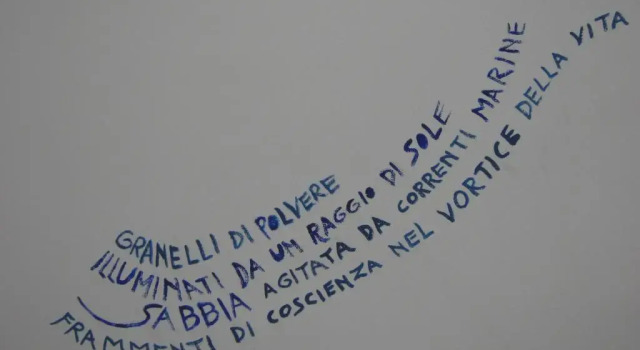 GRANELLI DI POLVERE
ILLUMINATI DA UN RAGGIO DI SOLE
SABBIA AGITATA DA CORRENTI MARINE
FRAMMENTI DI COSCIENZA NEL VORTICE DELLA VITA